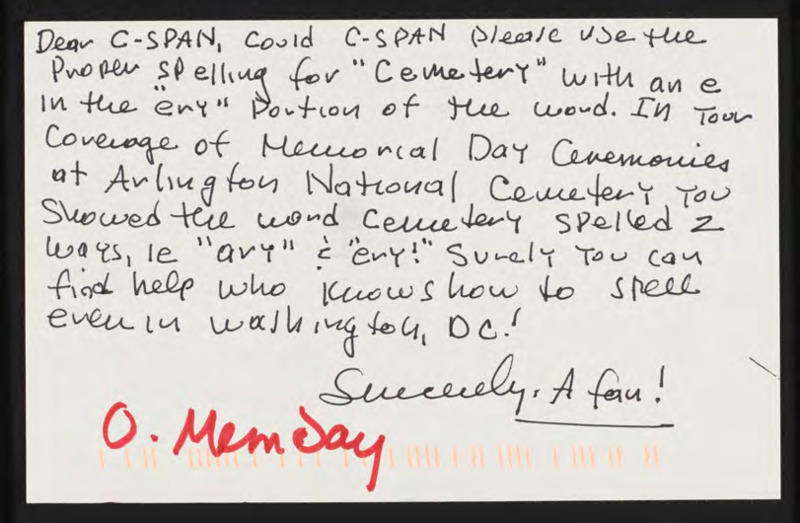 Dear C-SPAN, Could C-SPAN please use the
proper spelling for "Cemetery" with an e
in the "ery" portion of the word. In your
Coverage of Memorial Day Ceremonies
at Arlington National Cemetery you
showed the word cemetery spelled 2
ways, ie "ary" & "ery!" Surely you can
find help who knows how to spell
even in Washington, DC.!
Sincerely, A fan!
O. Mem Day